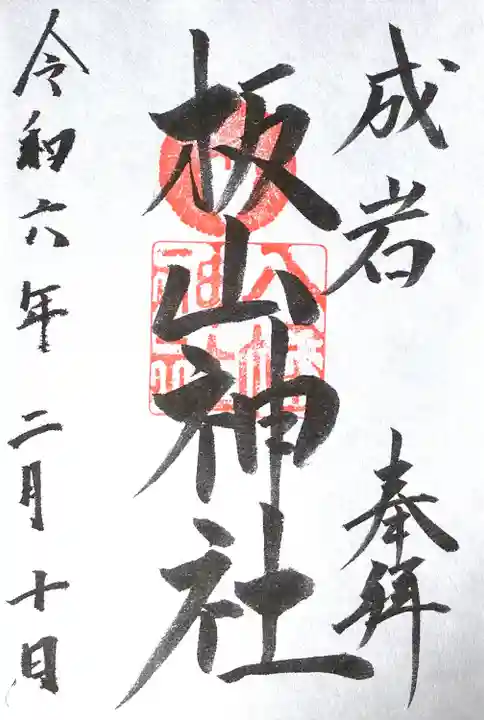 成岩 奉拝
板山神社
令和六年 二月 十日